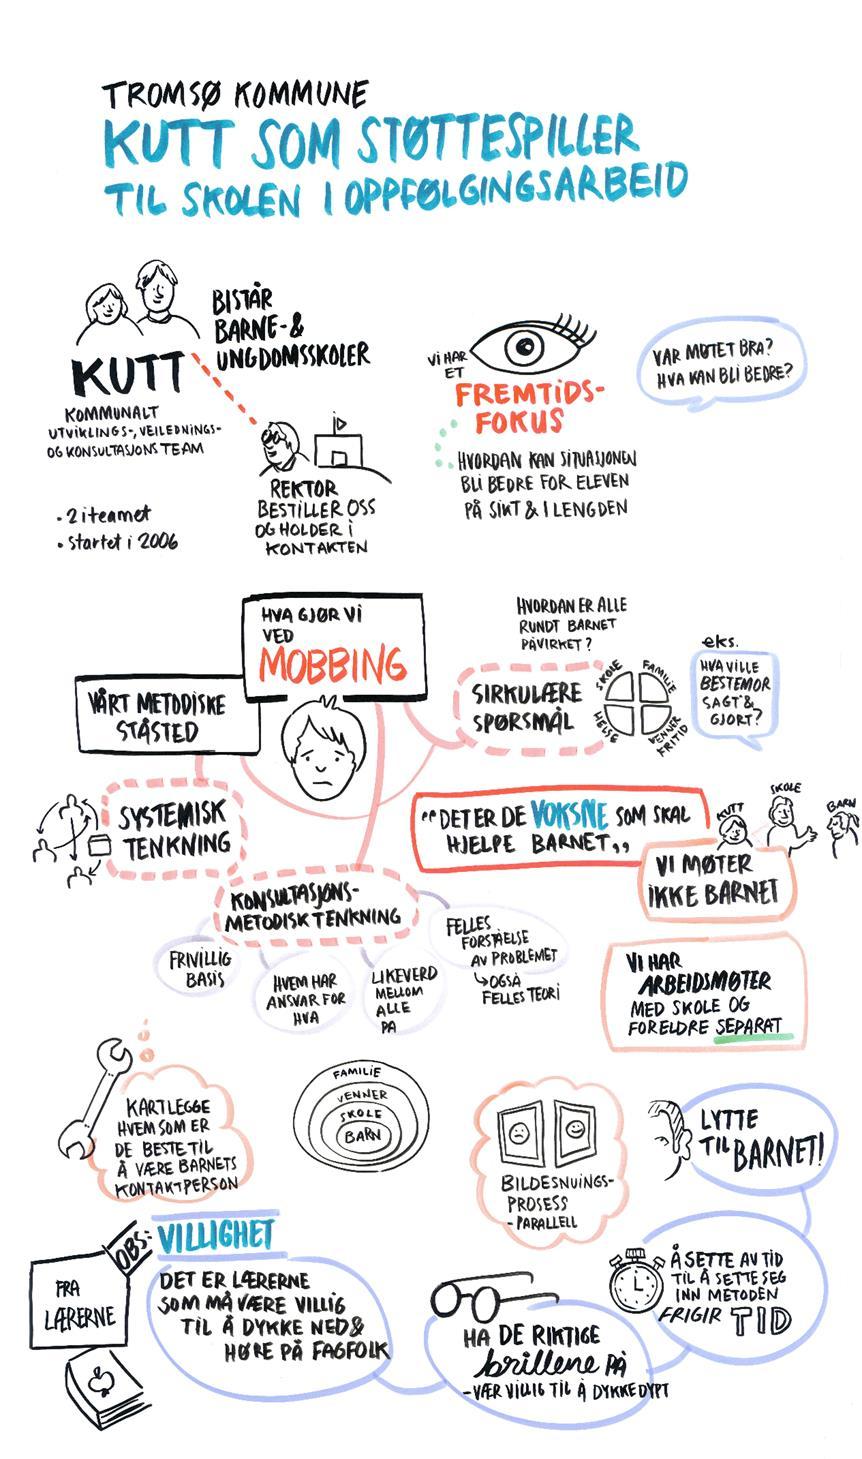 TROMSØ KOMMUNE
KUTT SOM STØTTESPILLER
TIL SKOLEN I OPPFØLGINGSARBEID
KUTT
KOMMUNALT
UTVIKLINGS-, VEILEDNINGS-
OG KONSULTASJONSTEAM
• 2 i teamet
• startet i 2006
BISTÅR
BARNE- &
UNGDOMSSKOLER
REKTOR
BESTILLER OSS
OG HOLDER I
KONTAKTEN
VI HAR
ET
FREMTIDS-
FOKUS
HVORDAN KAN SITUASJONEN
BLI BEDRE FOR ELEVEN
PÅ SIKT & I LENGDEN
VAR MØTET BRA?
HVA KAN BLI BEDRE?
HVA GJØR VI
VED
MOBBING
VÅRT METODISKE
STÅSTED
SYSTEMISK
TENKNING
HVORDAN ER ALLE
RUNDT BARNET
PÅVIRKET?
SIRKULÆRE
SPØRSMÅL
SKOLE
FAMILIE
HELSE
VENNER
FRITID
eks.
HVA VILLE
BESTEMOR
SAGT &
GJORT?
"DET ER DE VOKSNE SOM SKAL
HJELPE BARNET"
KUTT
SKOLE
BARN
VI MØTER
IKKE BARNET
KONSULTASJONS-
METODISK TENKNING
FRIVILLIG
BASIS
HVEM HAR
ANSVAR FOR
HVA
LIKEVERD
MELLOM
ALLE
PA
FELLES
FORSTÅELSE
AV PROBLEMET
↳ OGSÅ
FELLES TEORI
VI HAR
ARBEIDSMØTER
MED SKOLE OG
FORELDRE SEPARAT
KARTLEGGE
HVEM SOM ER
DE BESTE TIL
Å VÆRE BARNETS
KONTAKTPERSON
FAMILIE
VENNER
SKOLE
BARN
BILDESNUINGS-
PROSESS
- PARALLELL
LYTTE
TIL BARNET!
OBS:
VILLIGHET
FRA
LÆRERNE
DET ER LÆRERNE
SOM MÅ VÆRE VILLIG
TIL Å DYKKE NED &
HØRE PÅ FAGFOLK
HA DE RIKTIGE
brillene PÅ
- VÆR VILLIG TIL Å DYKKE DYPT
Å SETTE AV TID
TIL Å SETTE SEG
INN METODEN
FRIGIR TID